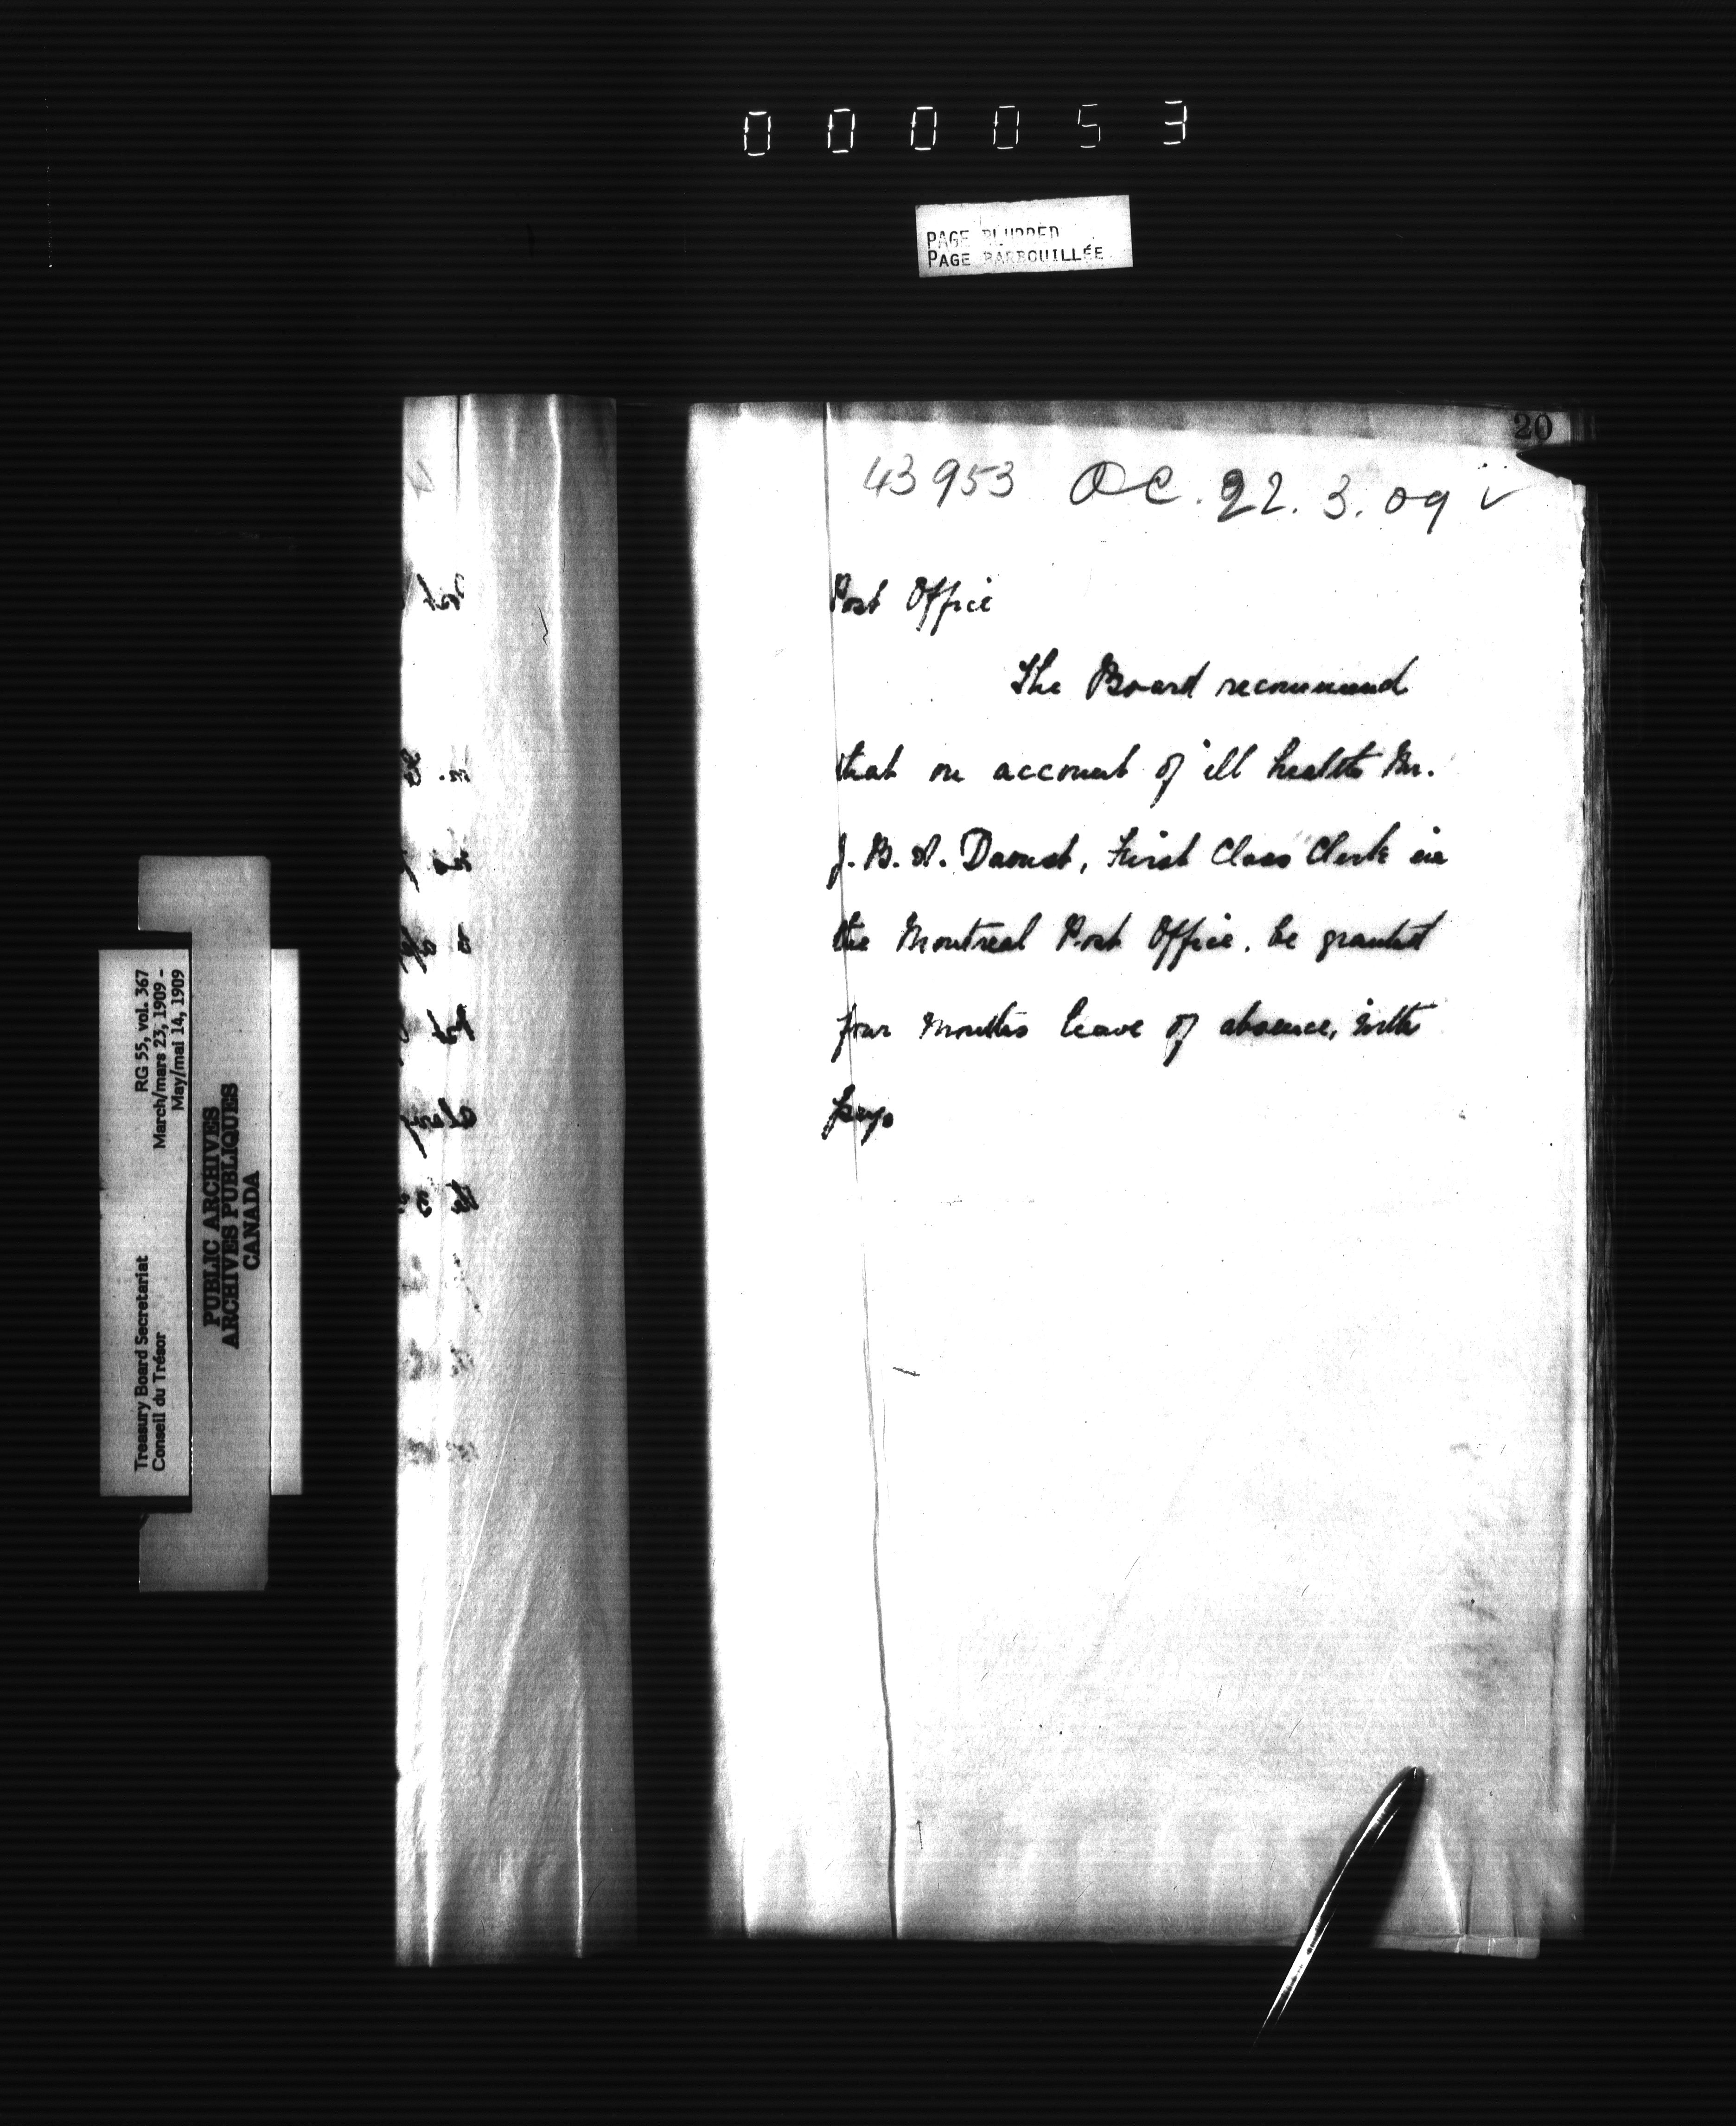 000053
PAGE BLURRED
PAGE BARBOUILLÉE
20
43953 OC. 22. 3. 09 ✓
Post Office
The Board recommend
that on account of ill health Mr.
J. B. A. Daoust, First Class Clerk in
the Montreal Post Office, be granted
four months leave of absence, with
pay.
RG 55, vol. 367
March/mars 23, 1909 -
May/mai 14, 1909
Treasury Board Secretariat
Conseil du Trésor
PUBLIC ARCHIVES
ARCHIVES PUBLIQUES
CANADA